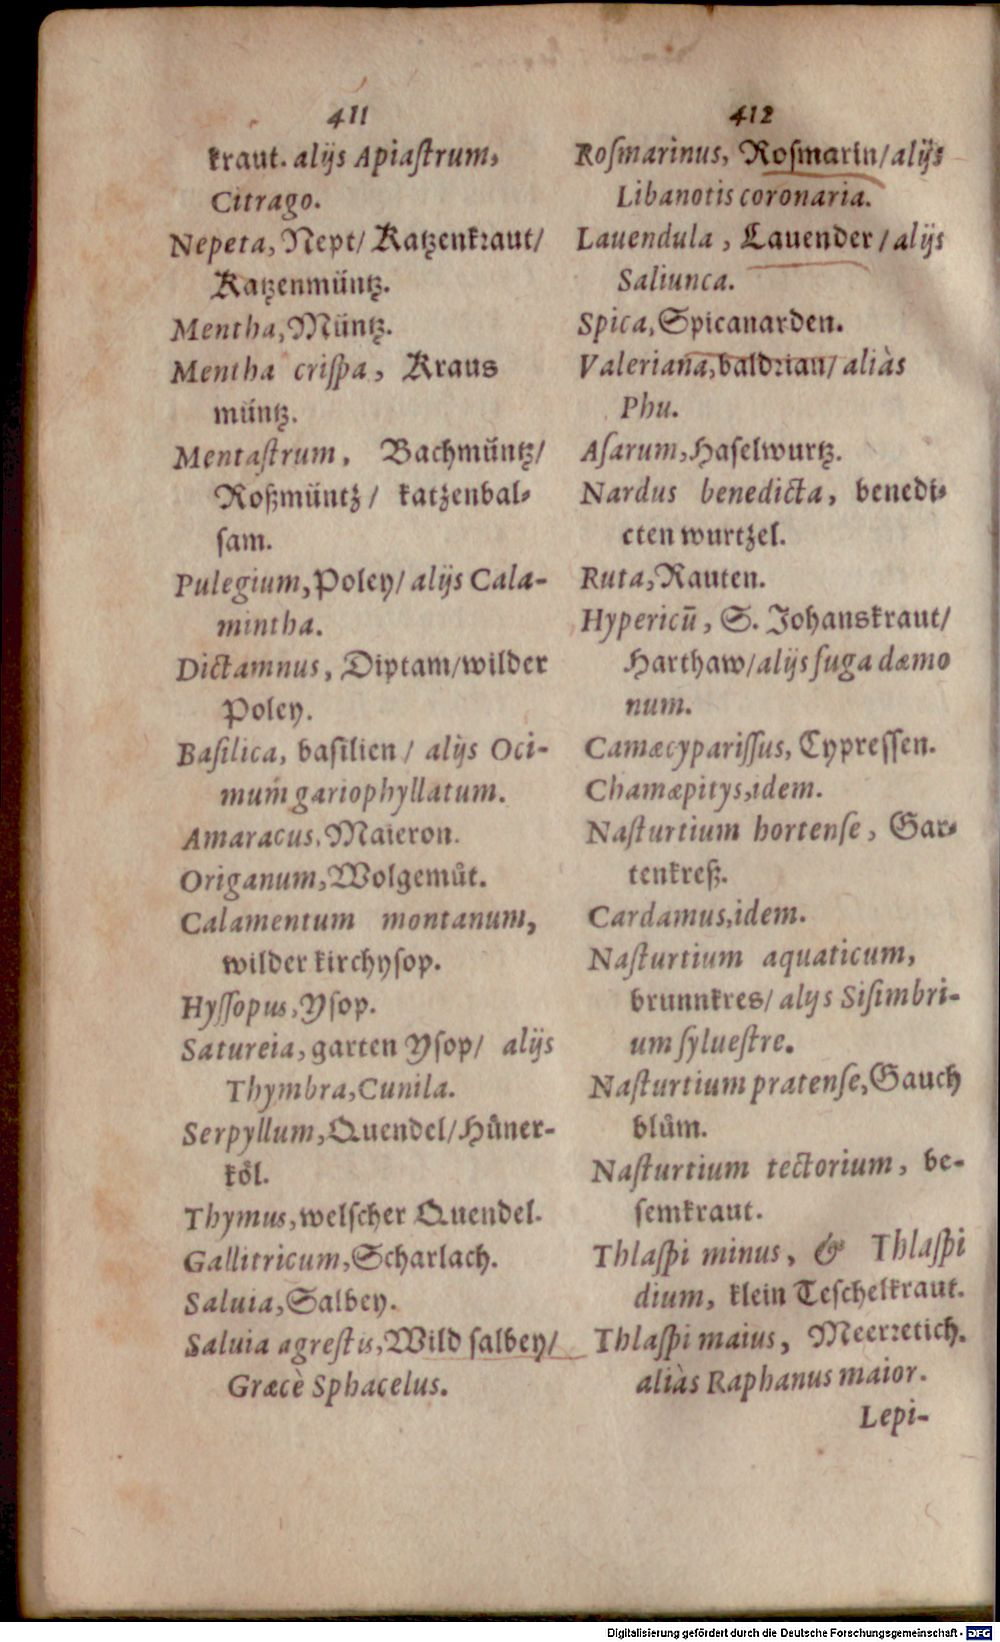 411
kraut. alijs Apiaſtrum,
Citrago.
Nepeta, Nept/ Katzenkraut/
Katzenmüntz.
Mentha, Müntz.
Mentha criſpa, Kraus
müntz.
Mentaſtrum, Bachmüntz/
Roßmüntz/ katzenbal-
ſam.
Pulegium, Poley/ alijs Cala-
mintha.
Dictamnus, Diptam/wilder
Poley.
Baſilica, baſilien/ alijs Oci-
mum gariophyllatum.
Amaracus, Maieron.
Origanum, Wolgemůt.
Calamentum montanum,
wilder kirchyſop.
Hyſſopus, Yſop.
Satureia, garten Yſop/ alijs
Thymbra, Cunila.
Serpyllum, Quendel/Hůner-
kôl.
Thymus, welſcher Quendel.
Gallitricum, Scharlach.
Saluia, Salbey.
Saluia agreſtis, Wild ſalbey/
Græcè Sphacelus.
412
Roſmarinus, Roſmarin/alijs
Libanotis coronaria.
Lauendula, Lauender/alijs
Saliunca.
Spica, Spicanarden.
Valeriana, baldrian/ aliàs
Phu.
Aſarum, Haſelwurtz.
Nardus benedicta, benedi-
cten wurtzel.
Ruta, Rauten.
Hypericū, S. Johanskraut/
Harthaw/alijs fuga dæmo
num.
Camæcypariſſus, Cypreſſen.
Chamæpitys, idem.
Naſturtium hortenſe, Gar-
tenkreß.
Cardamus, idem.
Naſturtium aquaticum,
brunnkres/ alijs Siſimbri-
um ſylueſtre.
Naſturtium pratenſe, Gauch
blům.
Naſturtium tectorium, be-
ſemkraut.
Thlaſpi minus, & Thlaſpi
dium, klein Teſchelkraut.
Thlaſpi maius, Meerretich.
aliàs Raphanus maior.
Lepi-
Digitalisierung gefördert durch die Deutsche Forschungsgemeinschaft - DFG